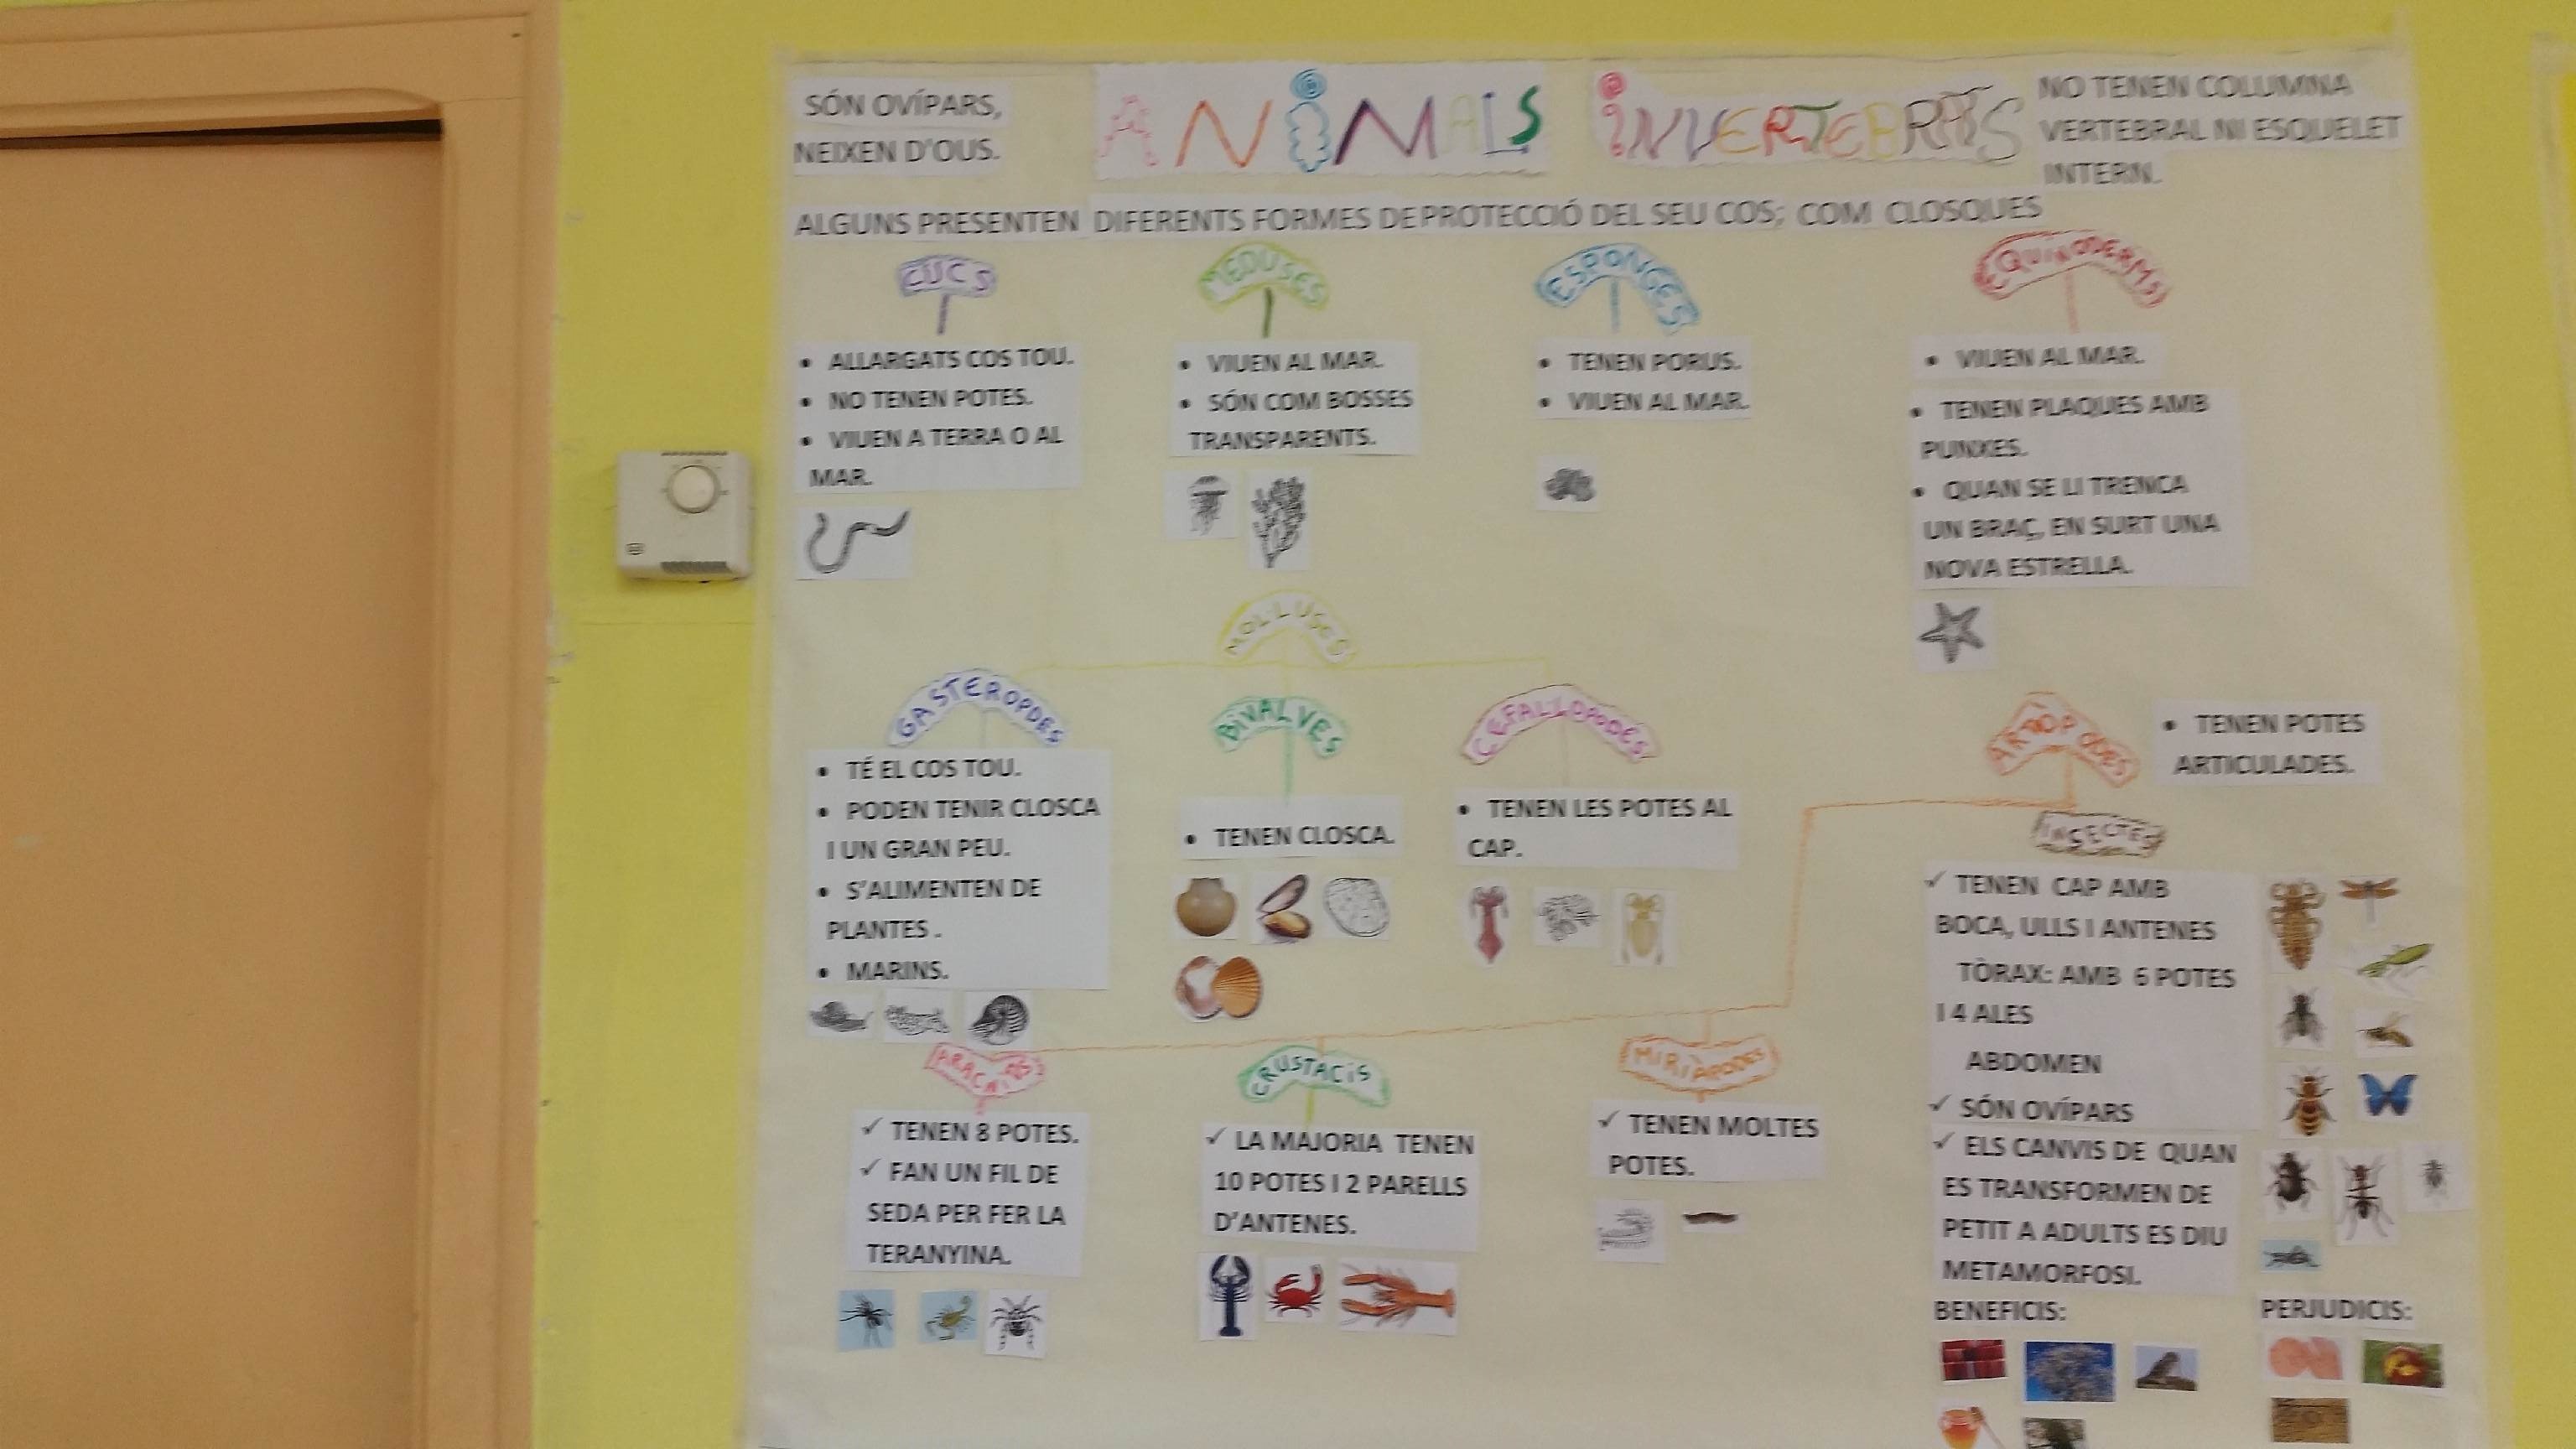 SÓN OVÍPARS,
NEIXEN D'OUS.
ANIMALS INVERTEBRATS
NO TENEN COLUMNA
VERTEBRAL NI ESQUELET
INTERN.
ALGUNS PRESENTEN DIFERENTS FORMES DE PROTECCIÓ DEL SEU COS; COM CLOSQUES
CUCS
• ALLARGATS COS TOU.
• NO TENEN POTES.
• VIUEN A TERRA O AL
MAR.
MEDUSES
• VIUEN AL MAR.
• SÓN COM BOSSES
TRANSPARENTS.
ESPONGES
• TENEN PORUS.
• VIUEN AL MAR.
EQUINODERMS
• VIUEN AL MAR.
• TENEN PLAQUES AMB
PUNXES.
• QUAN SE LI TRENCA
UN BRAÇ, EN SURT UNA
NOVA ESTRELLA.
MOL·LUSCS
GASTEROPDES
• TÉ EL COS TOU.
• PODEN TENIR CLOSCA
I UN GRAN PEU.
• S'ALIMENTEN DE
PLANTES .
• MARINS.
BIVALVES
• TENEN CLOSCA.
CEFALLOPODES
• TENEN LES POTES AL
CAP.
ARTRÒPODES
• TENEN POTES
ARTICULADES.
INSECTES
✓ TENEN CAP AMB
BOCA, ULLS I ANTENES
TÒRAX: AMB 6 POTES
I 4 ALES
ABDOMEN
✓ SÓN OVÍPARS
✓ ELS CANVIS DE QUAN
ES TRANSFORMEN DE
PETIT A ADULTS ES DIU
METAMORFOSI.
BENEFICIS:
PERJUDICIS:
✓ TENEN 8 POTES.
✓ FAN UN FIL DE
SEDA PER FER LA
TERANYINA.
CRUSTACIS
✓ LA MAJORIA TENEN
10 POTES I 2 PARELLS
D'ANTENES.
MIRIÀPODES
✓ TENEN MOLTES
POTES.